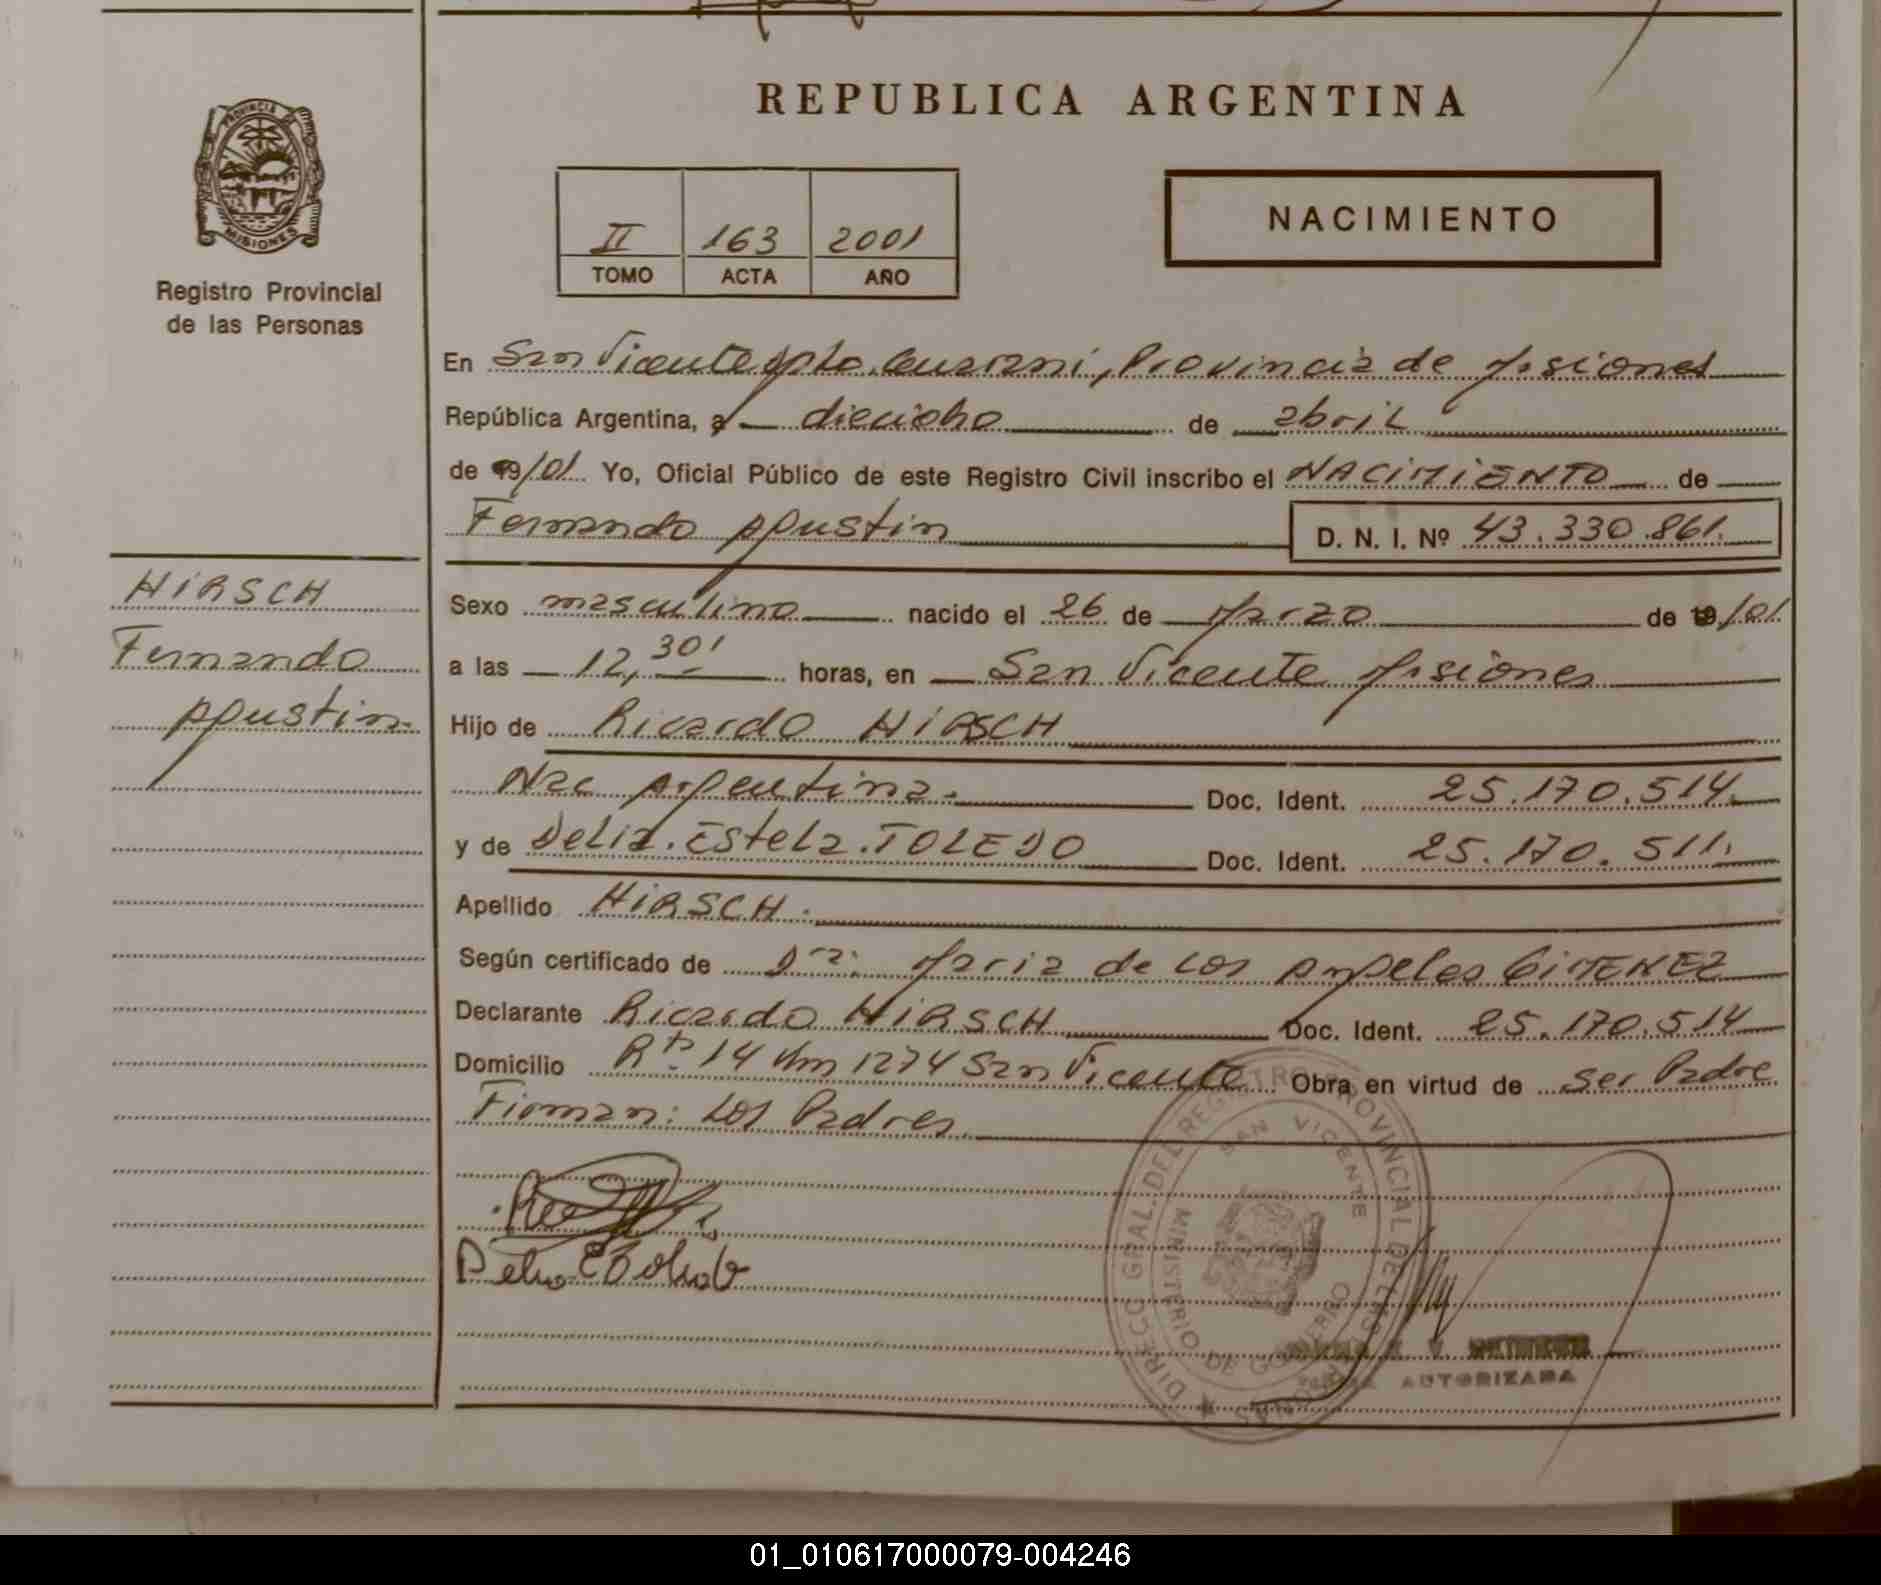 REPUBLICA ARGENTINA
PROVINCIA
MISIONES
Registro Provincial
de las Personas
II 163 2001
TOMO ACTA AÑO
NACIMIENTO
En San Vicente Dpto. Guarani, Provincia de Misiones
República Argentina, a dieciocho de abril
de 19/01 Yo, Oficial Público de este Registro Civil inscribo el NACIMIENTO de
Fernando Agustin D. N. I. Nº 43.330.861.
HIRSCH
Fernando
Agustin
Sexo masculino nacido el 26 de Marzo de 19/01
a las 12,30' horas, en San Vicente Misiones
Hijo de Ricardo HIRSCH
Nac Argentina. Doc. Ident. 25.170.514.
y de Delia. Estela. TOLEDO Doc. Ident. 25.170.511.
Apellido HIRSCH.
Según certificado de Dra. Maria de Los Angeles GIMENEZ
Declarante Ricardo HIRSCH Doc. Ident. 25.170.514
Domicilio Rta. 14 Km 1274 San Vicente Obra en virtud de ser Padre
Firman: Los Padres
DIRECC GRAL. DEL REGISTRO PROVINCIAL DE LAS PERSONAS
SAN VICENTE
MINISTERIO DE GOBIERNO
AUTORIZADA
01_010617000079-004246